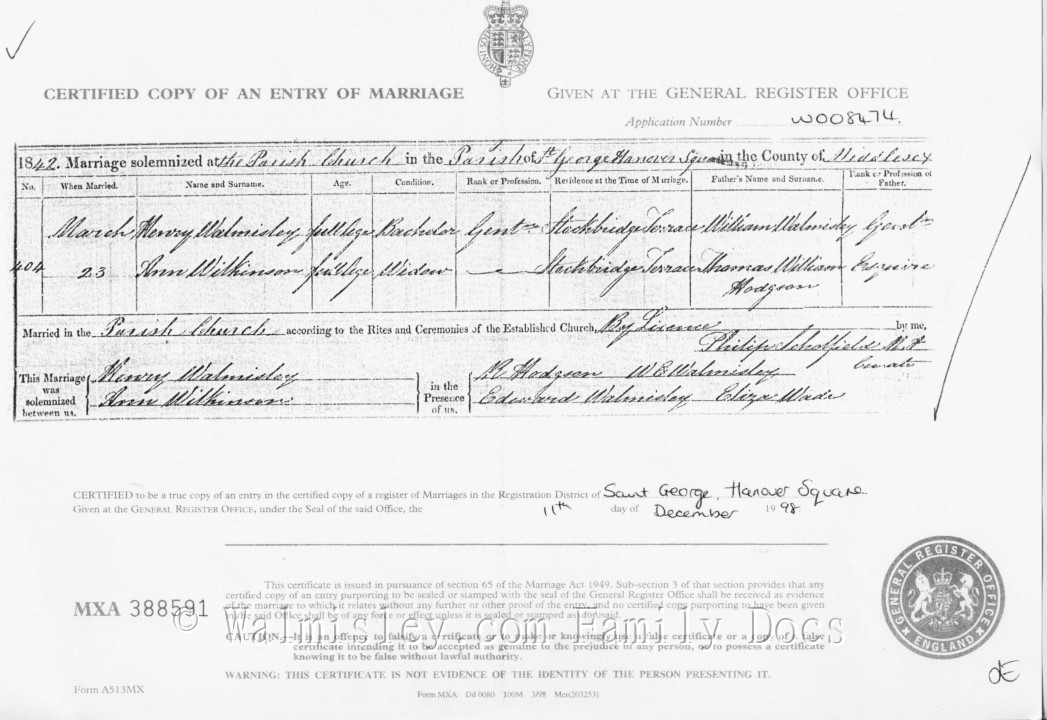 CERTIFIED COPY OF AN ENTRY OF MARRIAGE
GIVEN AT THE GENERAL REGISTER OFFICE
Application Number W008474.
1842. Marriage solemnized at the Parish Church in the Parish of St George Hanover Square in the County of Middlesex
No. When Married. Name and Surname. Age. Condition. Rank or Profession. Residence at the Time of Marriage. Father's Name and Surname. Rank or Profession of Father.
March Henry Walmisley full age Bachelor Gentn Stockbridge Terrace William Walmisley Gentn
404 23 Ann Wilkinson full age Widow — Stockbridge Terrace Thomas William Hodgson Esquire
Married in the Parish Church according to the Rites and Ceremonies of the Established Church, By Licence by me,
Philip Scholfield
Curate
This Marriage was solemnized between us, Henry Walmisley
Ann Wilkinson
in the Presence of us, Hodgson W E Walmisley
Edward Walmisley Eliza Wade
CERTIFIED to be a true copy of an entry in the certified copy of a register of Marriages in the Registration District of Saint George, Hanover Square
Given at the GENERAL REGISTER OFFICE, under the Seal of the said Office, the 11th day of December 1998
This certificate is issued in pursuance of section 65 of the Marriage Act 1949. Sub-section 3 of that section provides that any
certified copy of an entry purporting to be sealed or stamped with the seal of the General Register Office shall be received as evidence
of the marriage to which it relates without any further or other proof of the entry, and no certified copy purporting to have been given
in the said Office shall be of any force or effect unless it is sealed or stamped as aforesaid.
MXA 388591
© Walmisley.com Family Docs
CAUTION: It is an offence to falsify a certificate or to make or knowingly use a false certificate or a copy of a false
certificate intending it to be accepted as genuine to the prejudice of any person, or to possess a certificate
knowing it to be false without lawful authority.
WARNING: THIS CERTIFICATE IS NOT EVIDENCE OF THE IDENTITY OF THE PERSON PRESENTING IT.
GENERAL REGISTER OFFICE
ENGLAND
Form A513MX
Form MXA Dd 0080 100M 3/98 Mcr(203253)